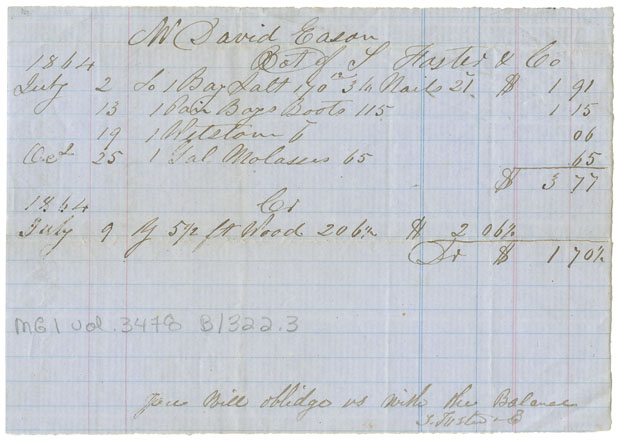 Mr David Eason
1864 Bot of S Foster & Co
July 2 To 1 Bag Salt 170 3 lb Nails 21 $ 1 91
13 1 Pair Boys Boots 115 1 15
19 1 06
Oct 25 1 Gal Molasses 65 65
$ 3 77
1864 Cr
July 9 By 5 1/2 ft Wood 206 1/2 $ 2 06 1/2
Dr $ 1 70 1/2
MG1 Vol. 3478 B1322.3
you will oblidge us with the Balance
S. Foster & Co